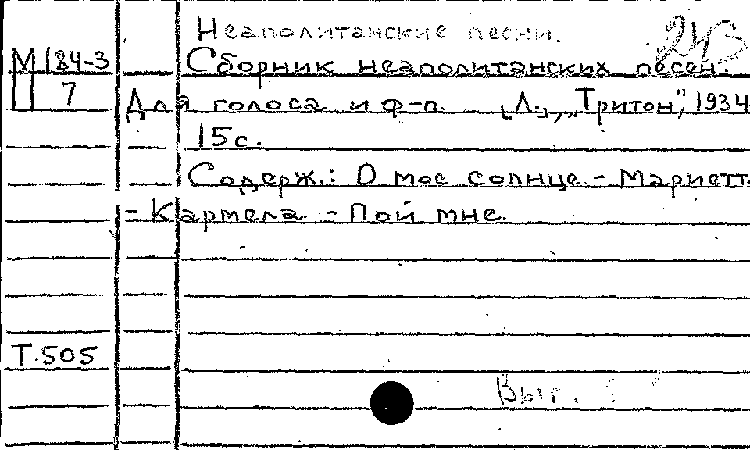 Неаполитанские песни.
243
М 184-3 Сборник неаполитанских песен.
7 Для голоса и ф-п. [Л.], „Тритон", 1934
15с.
Содерж.: О мое солнце. - Мариетт
- Кармела. - Пой мне.
Т.505